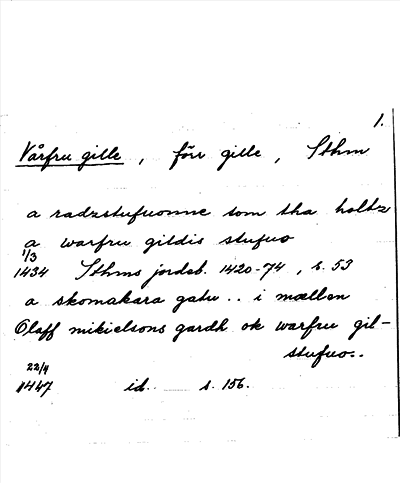 1.
Vårfru gille, förr gille, Sthm
a radzstufuonne som tha holtz
a warfru gildis stufuo
1/3
1434 Sthms jordeb. 1420-74, s. 53
a skomakara gatu.. i mællen
Olaff mikielsons gardh ok warfru gil-
stufuo..
22/4
1447 id. s. 156.